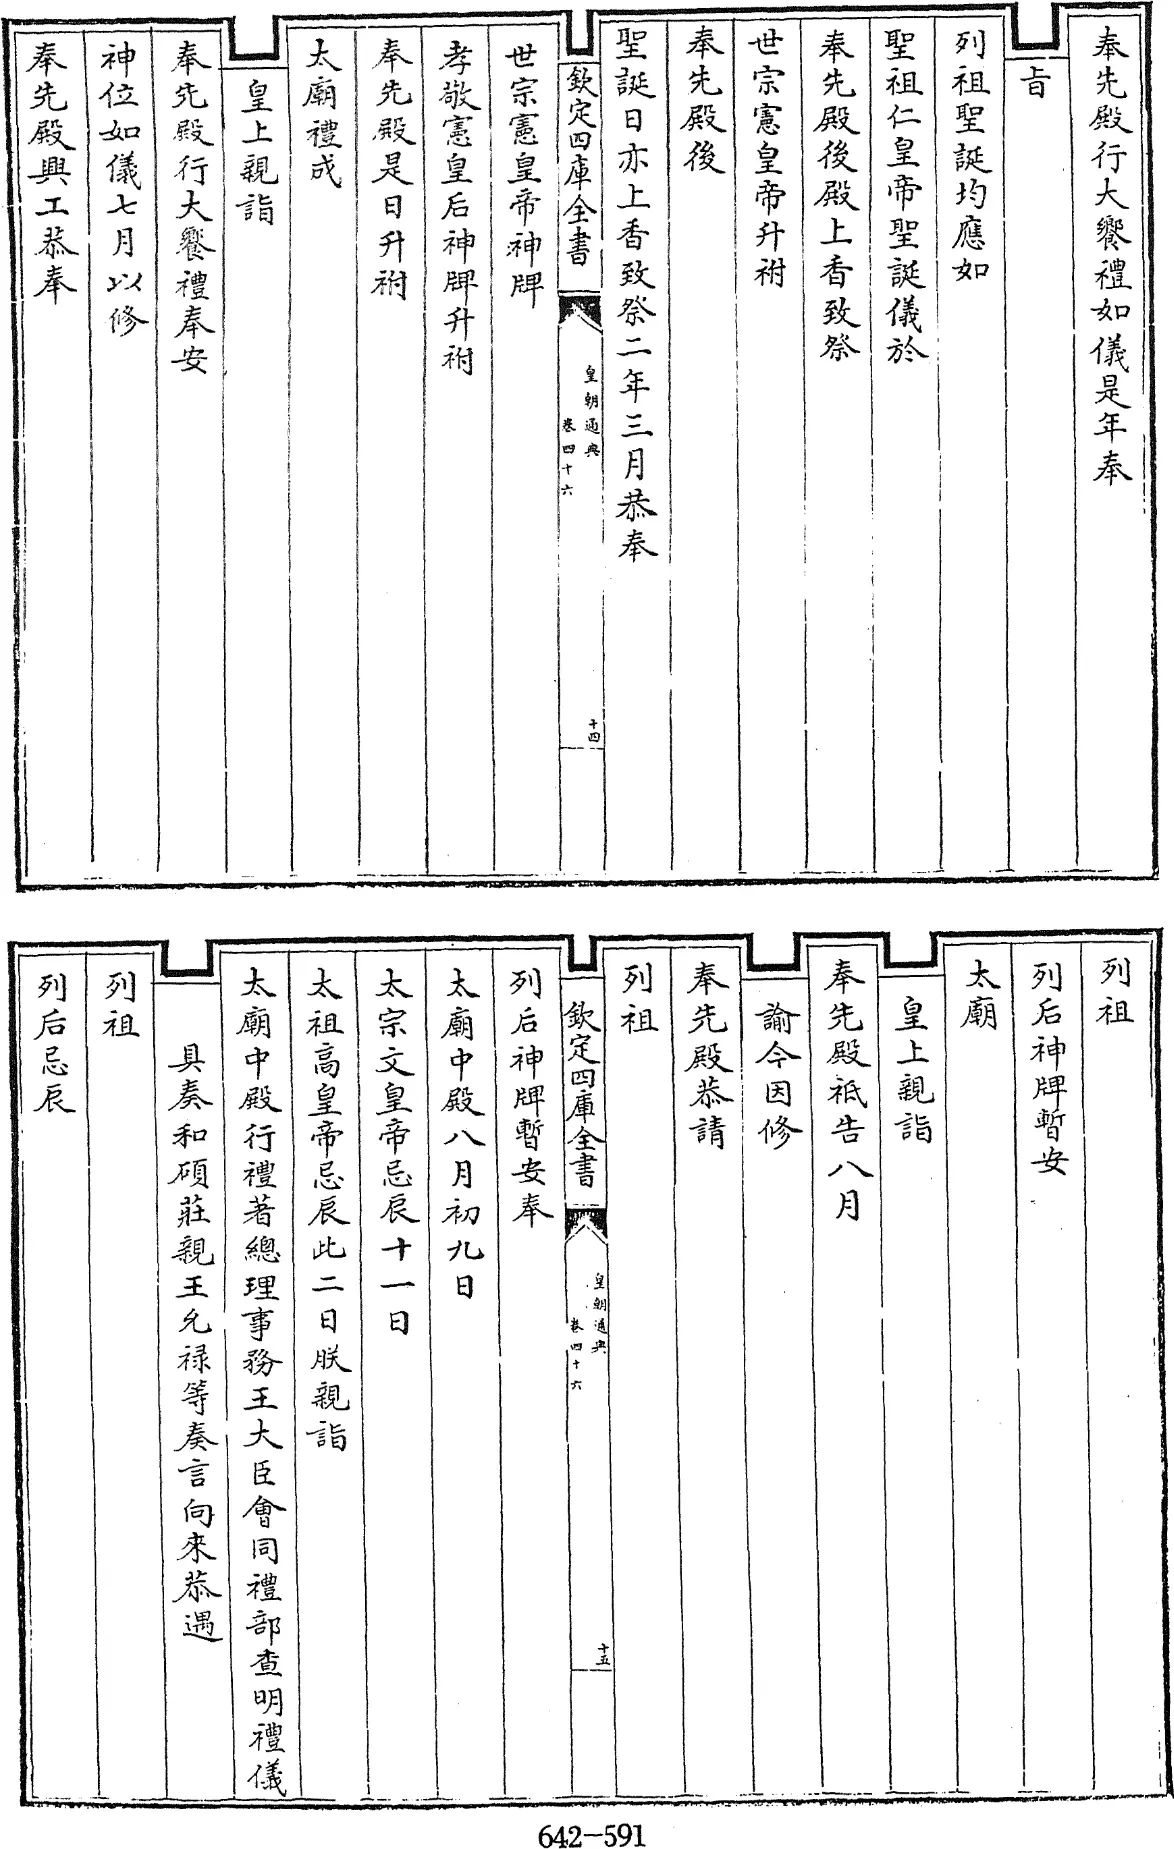 奉先殿行大饗禮如儀是年奉
旨
列祖聖誕均應如
聖祖仁皇帝聖誕儀於
奉先殿後殿上香致祭
世宗憲皇帝升祔
奉先殿後
聖誕日亦上香致祭二年三月恭奉
欽定四庫全書
皇朝通典
卷四十六
十四
世宗憲皇帝神牌
孝敬憲皇后神牌升祔
奉先殿是日升祔
太廟禮成
皇上親詣
奉先殿行大饗禮奉安
神位如儀七月以修
奉先殿興工恭奉
列祖
列后神牌暫安
太廟
皇上親詣
奉先殿祗告八月
諭今因修
奉先殿恭請
列祖
欽定四庫全書
皇朝通典
卷四十六
十五
列后神牌暫安奉
太廟中殿八月初九日
太宗文皇帝忌辰十一日
太祖高皇帝忌辰此二日朕親詣
太廟中殿行禮著總理事務王大臣會同禮部查明禮儀
具奏和碩莊親王允祿等奏言向來恭遇
列祖
列后忌辰
642-591